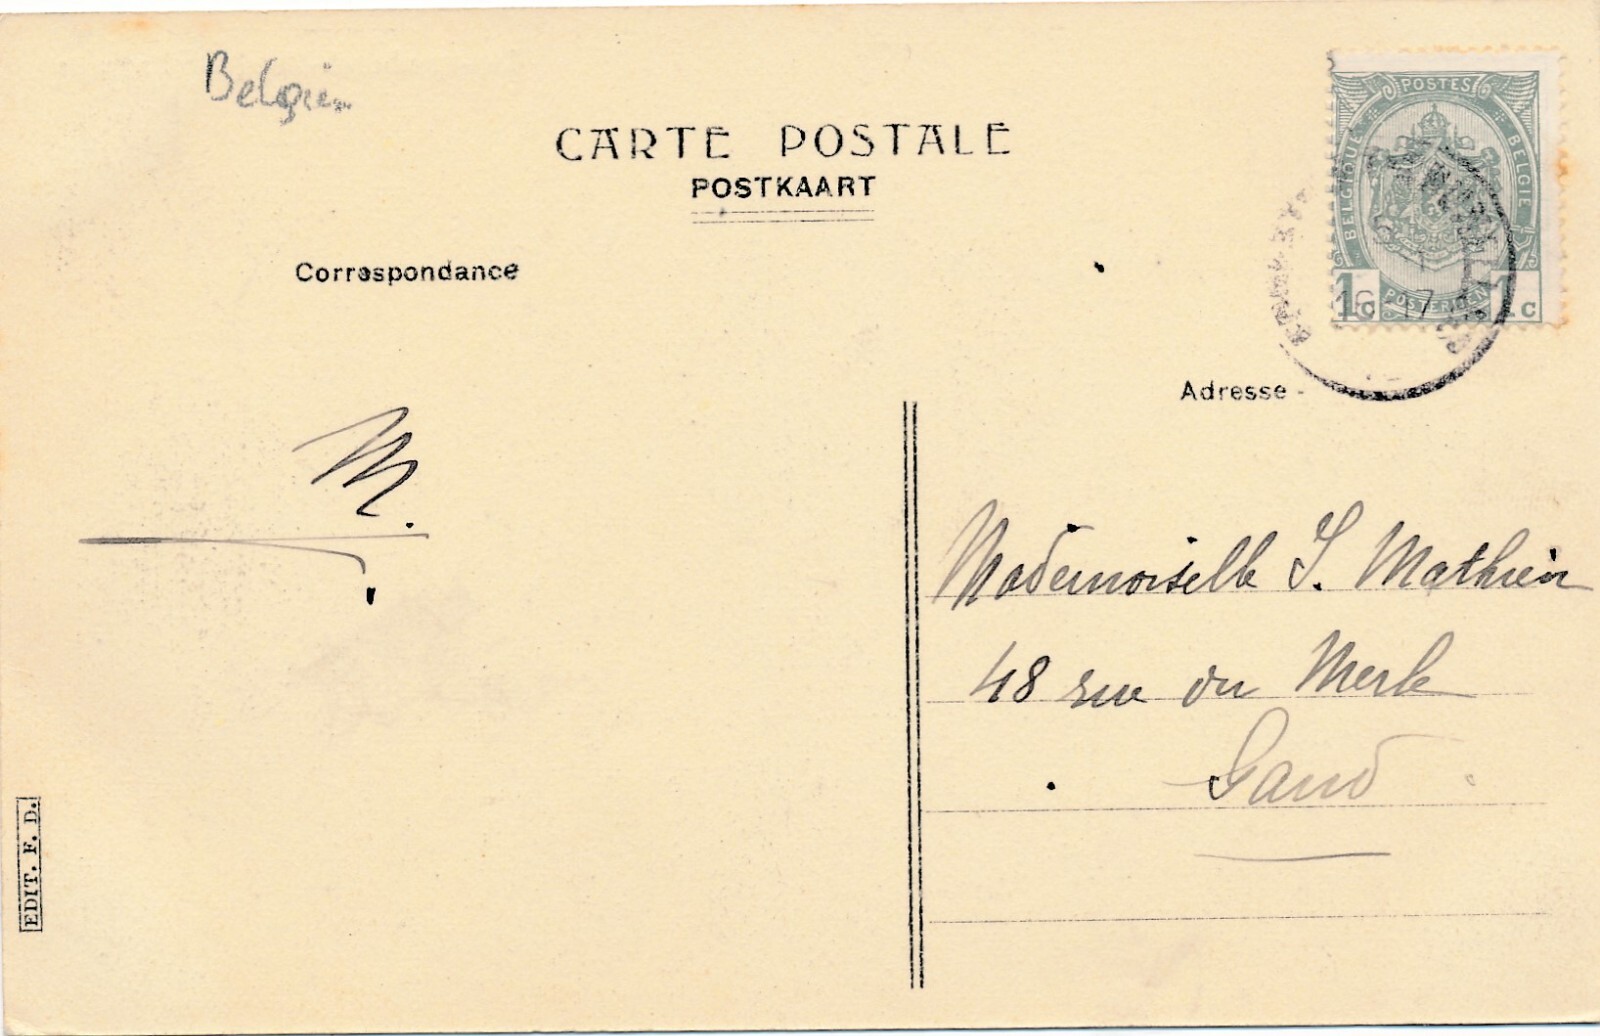 Belgien
CARTE POSTALE
POSTKAART
Correspondance
POSTES
BELGIQUE
BELGIË
POSTERIJEN
1c
1c
16-17
Adresse
M.
Mademoiselle S. Mathieu
48 rue du Merle
Gand
EDIT. F. D.